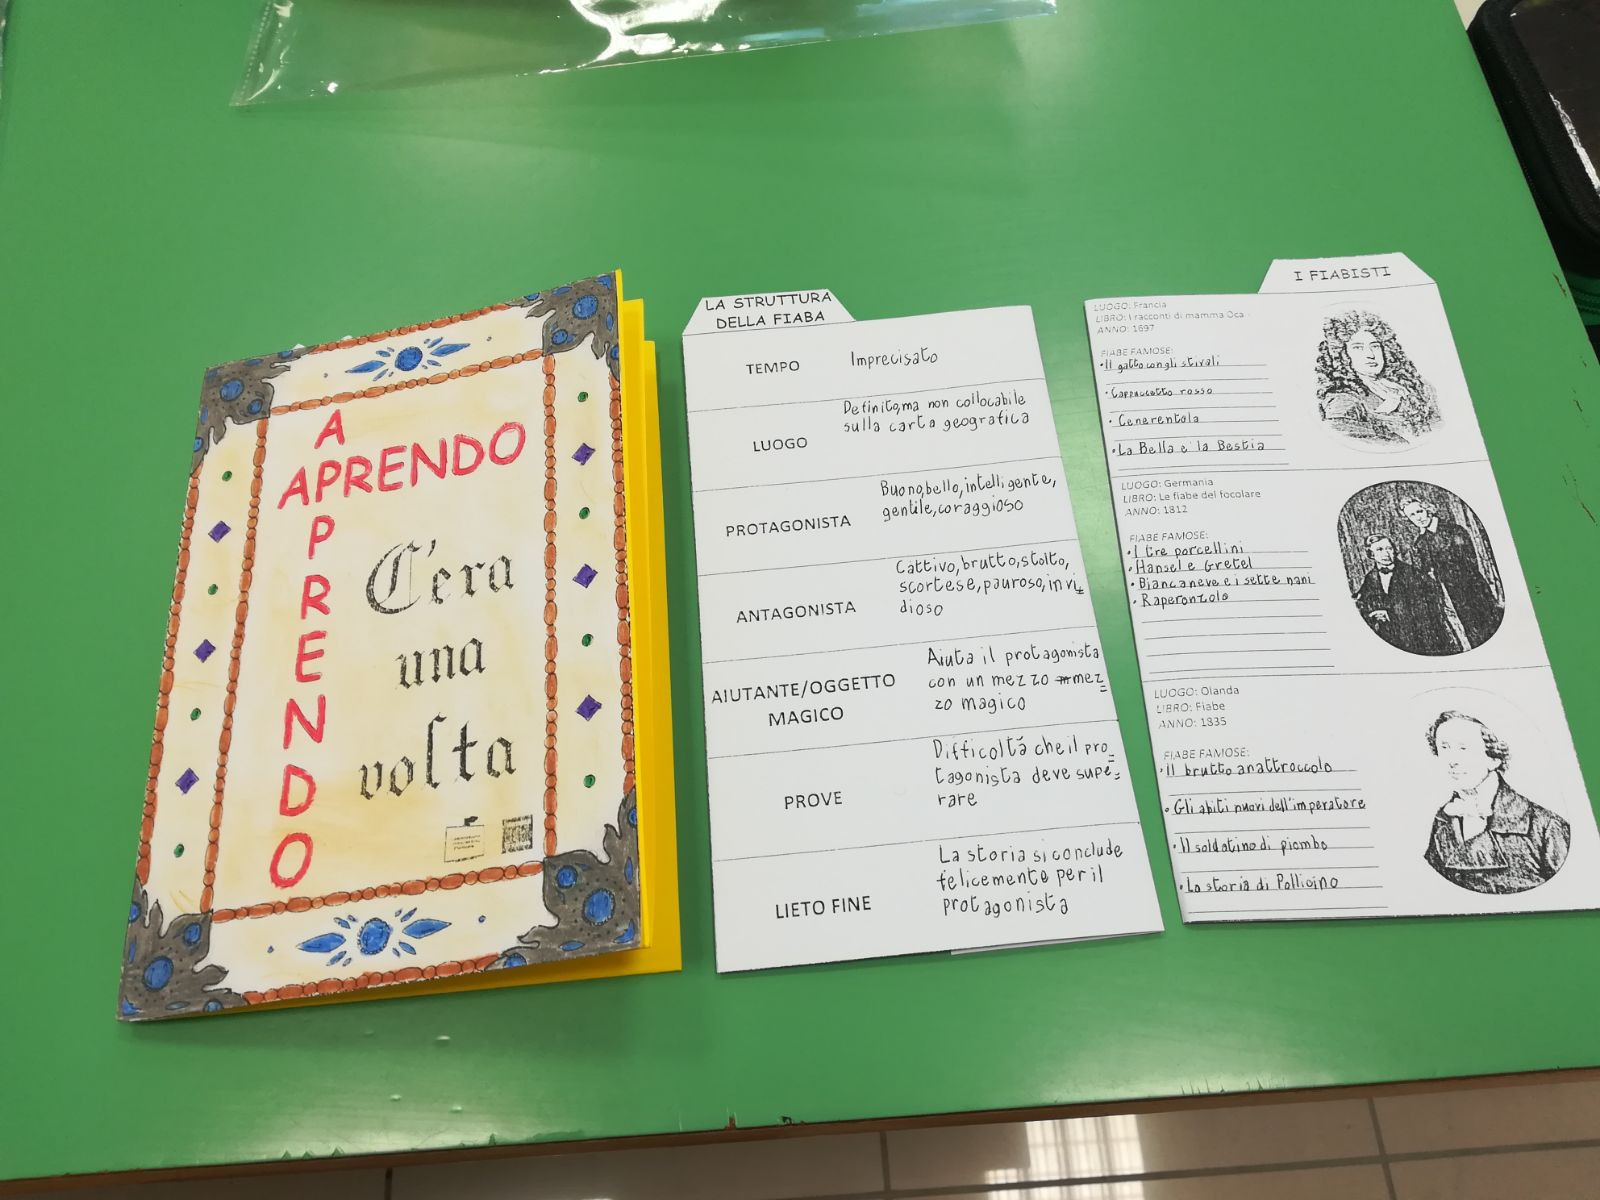 A
APRENDO
P
R
E
N
D
O
C'era
una
volta
LA STRUTTURA
DELLA FIABA
TEMPO
Imprecisato
LUOGO
Definito,ma non collocabile
sulla carta geografica
PROTAGONISTA
Buono,bello,intelligente,
gentile,coraggioso
ANTAGONISTA
Cattivo,brutto,stolto,
scortese,pauroso,invi_
dioso
AIUTANTE/OGGETTO
MAGICO
Aiuta il protagonista
con un mezzo mez=
zo magico
PROVE
Difficoltá che il pro=
tagonista deve supe=
rare
LIETO FINE
La storia si conclude
felicemente per il
protagonista
I FIABISTI
LUOGO: Francia
LIBRO: I racconti di mamma Oca
ANNO: 1697
FIABE FAMOSE:
• Il gatto con gli stivali
• Cappuccetto rosso
• Cenerentola
• La Bella e la Bestia
LUOGO: Germania
LIBRO: Le fiabe del focolare
ANNO: 1812
FIABE FAMOSE:
• I tre porcellini
• Hansel e Gretel
• Biancaneve e i sette nani
• Raperonzolo
LUOGO: Olanda
LIBRO: Fiabe
ANNO: 1835
FIABE FAMOSE:
• Il brutto anattroccolo
• Gli abiti nuovi dell'imperatore
• Il soldatino di piombo
• La storia di Pollicino